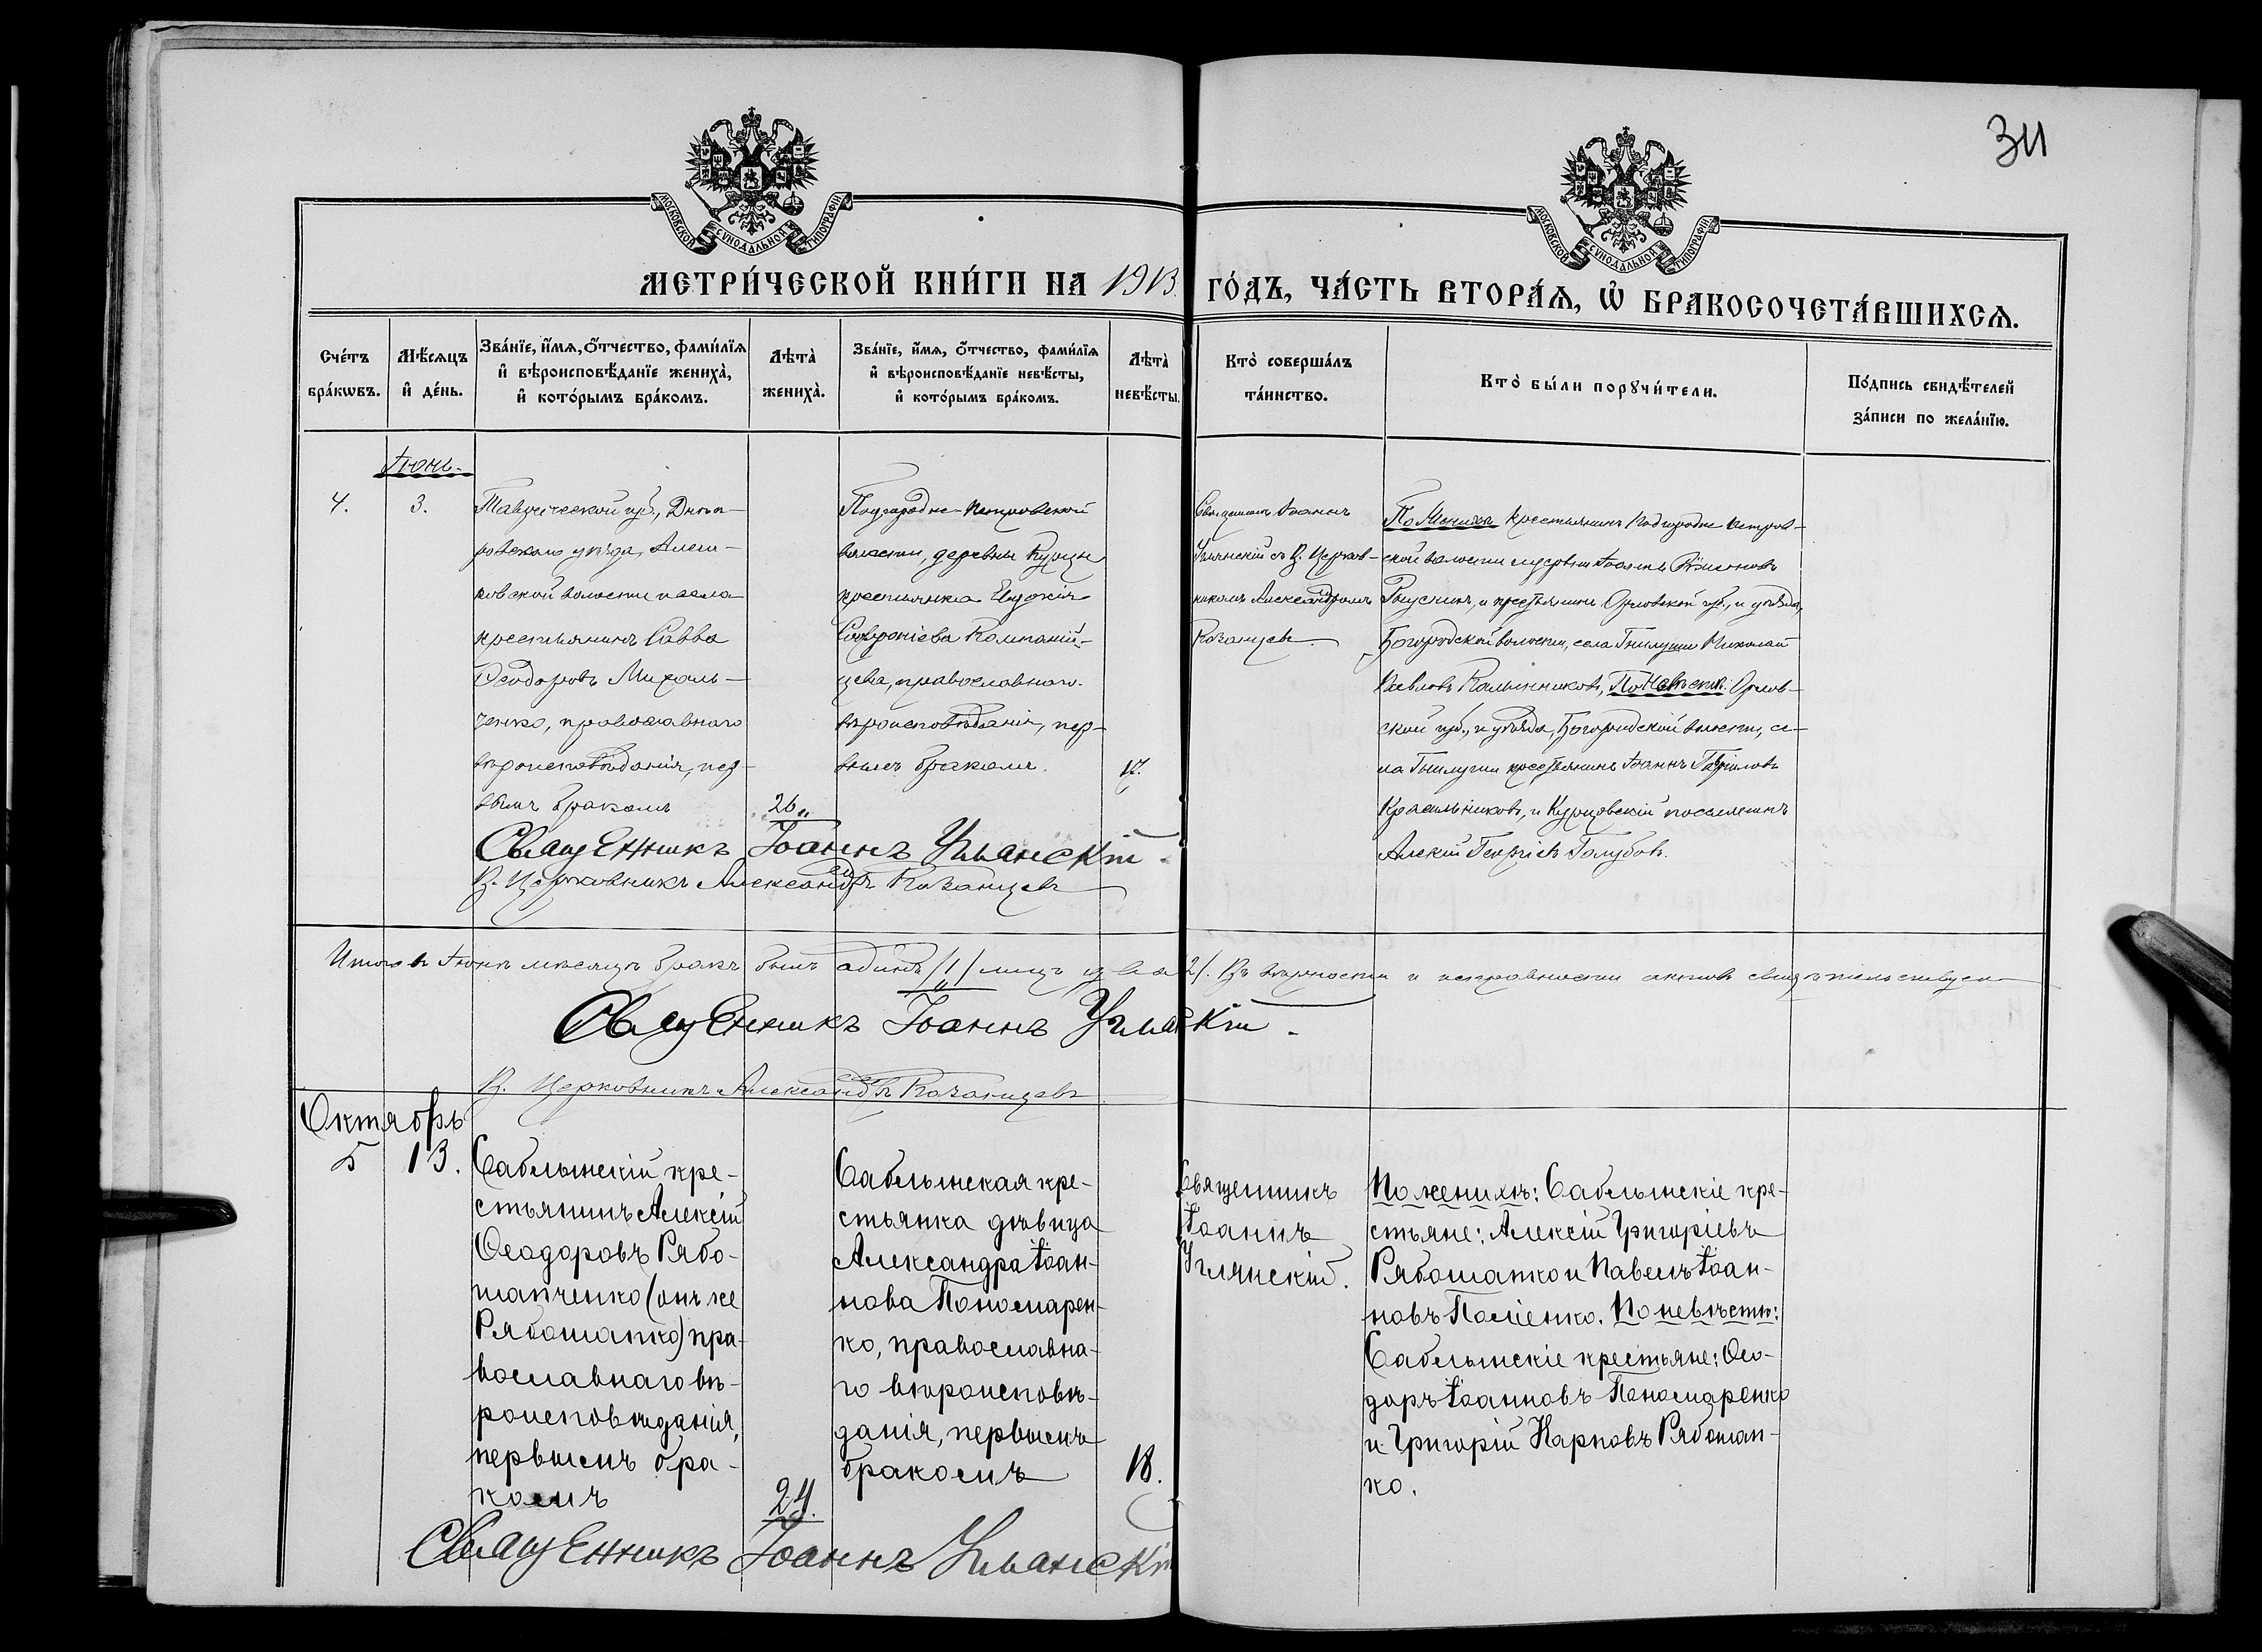 МОСКОВСКОЙ СѴНОДАЛЬНОЙ ТИПОГРАФІИ
МОСКОВСКОЙ СѴНОДАЛЬНОЙ ТИПОГРАФІИ
34
МЕТРИ́ЧЕСКОЙ КНИ́ГИ НА 1913 ГО́ДЪ, ЧА́СТЬ ВТОРА́Ѧ, Ѡ҆ БРАКОСОЧЕТА́ВШИХСѦ.
Сче́тъ
бра́кѡвъ.
Мѣ́сяцъ
и҆ де́нь.
Зва́нїе, и҆́мѧ, ѻ҆́тчество, фами́лїѧ
и҆ вѣроисповѣ́данїе жениха̀,
и҆ кото́рымъ бра́комъ.
Лѣта̀
жениха̀.
Зва́нїе, и҆́мѧ, ѻ҆́тчество, фами́лїѧ
и҆ вѣроисповѣ́данїе невѣ́сты,
и҆ кото́рымъ бра́комъ.
Лѣта̀
невѣ́сты.
Кто̀ соверша́лъ
та́инство.
Кто̀ бы́ли порꙋчи́тели.
По́дпись свидѣ́телей
за́писи по жела́нїю.
Іюнь.
4.
3.
Таврической губ., Днѣп-
ровскаго уѣзда, Алеш-
ковской волости и села
крестьянинъ Савва
Ѳеодоровъ Михаль-
ченко, православнаго
вѣроисповѣданія, пер-
вымъ бракомъ
26.
Подгородне-Петровской
волости, деревни Курцы
крестьянка Евдокія
Софроніева Компаній-
цева, православнаго
вѣроисповѣданія, пер-
вымъ бракомъ.
17.
Священникъ Іоаннъ
Углянскій съ В. Церков-
никомъ Александромъ
Казанцевъ.
По Женихѣ крестьянинъ Подгородне Петров-
ской волости деревни Іоаннъ
и крестьянинъ Орловской губ., и уѣзда,
Богородской волости, села Гнилуши Николай
Павловъ Калинниковъ, По Невѣстѣ: Орлов-
ской губ., и уѣзда, Богородской волости, се-
ла Гнилуши крестьянинъ Іоаннъ Гавриловъ
Красильниковъ, и Курцовскій поселянинъ
Алексій Георгіевъ Голубовъ.
Священникъ Іоаннъ Углянскій.
В. Церковникъ Александръ Казанцевъ
Итого въ Іюнѣ мѣсяцѣ бракъ былъ одинъ /1/ лицъ два /2/. Въ вѣрности и исправности актовъ свидѣтельствуемъ
Священникъ Іоаннъ Углянскій.
В. Церковникъ Александръ Казанцевъ
Октябрь
5
13.
Саблынскій кре-
стьянинъ Алексій
Ѳеодоровъ Рябо-
шапченко (онъ же
Рябошапко) пра-
вославнаго вѣ-
роисповѣданія,
первымъ бра-
комъ
24.
Саблынская кре-
стьянка дѣвица
Александра Іоан-
нова Пономарен-
ко, православна-
го вѣроисповѣ-
данія, первымъ
бракомъ
18.
Священникъ
Іоаннъ
Углянскій.
По женихѣ: Саблынскіе кре-
стьяне: Алексій Григоріевъ
Рябошапко и Павелъ Іоан-
новъ. По невѣстѣ:
Саблынскіе крестьяне: Ѳео-
доръ Іоанновъ Пономаренко
и Григорій Карповъ Рябошап-
ко.
Священникъ Іоаннъ Углянскій